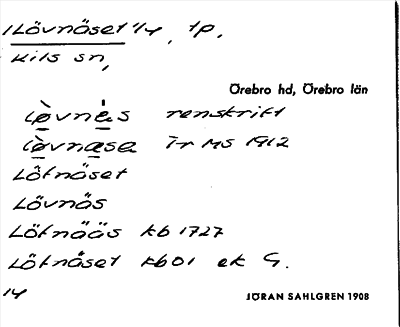 Lövnäset 1/4, tp.
Kils sn,
Örebro hd, Örebro län
Lø̀vnès renskrift
Lø̀vnæsə Ìr MS 1912
Lötnäset
Lövnäs
Löfnääs kb 1727
Löfnäset kb01 ek G.
14
JÖRAN SAHLGREN 1908